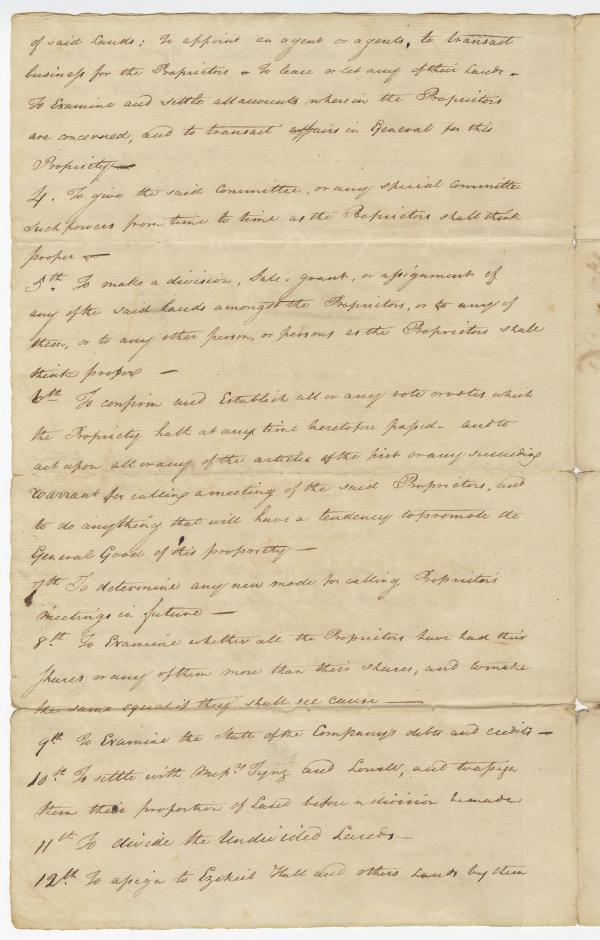 of said Lands; To appoint an agent or agents, to transact
business for the Proprietors - To lease or let any of their Lands -
To Examine and settle all accounts wherein the Proprietors
are concerned, and to transact affairs in General for this
Propriety —
4. To give the said Committee, or any special Committee
such powers from time to time as the Proprietors shall think
proper —
5th. To make a division, Sale, grant, or assignment of
any of the said Lands amongst the Proprietors, or to any of
them, or to any other person, or persons as the Proprietors shall
think proper —
6th To confirm and Establish all or any vote or votes which
the Propriety hath at any time heretofore passed - and to
act upon all or any of the articles of the first or any succeeding
Warrant for calling a meeting of the said Proprietors, and
to do anything that will have a tendency to promote the
General Good of this propriety —
7th To determine any new mode for calling Proprietors
meetings in future —
8th. To Examine whether all the Proprietors have had their
shares or any of them more than their shares, and to make
the same equal if they shall see cause —
9th To Examine the State of the Company's debts and credits —
10th To settle with Messrs Tyng and Lowell, and to assign
them their proportion of Land before a division be made
11th To divide the Undivided Lands —
12th. To assign to Ezekiel Hall and others Lands by them